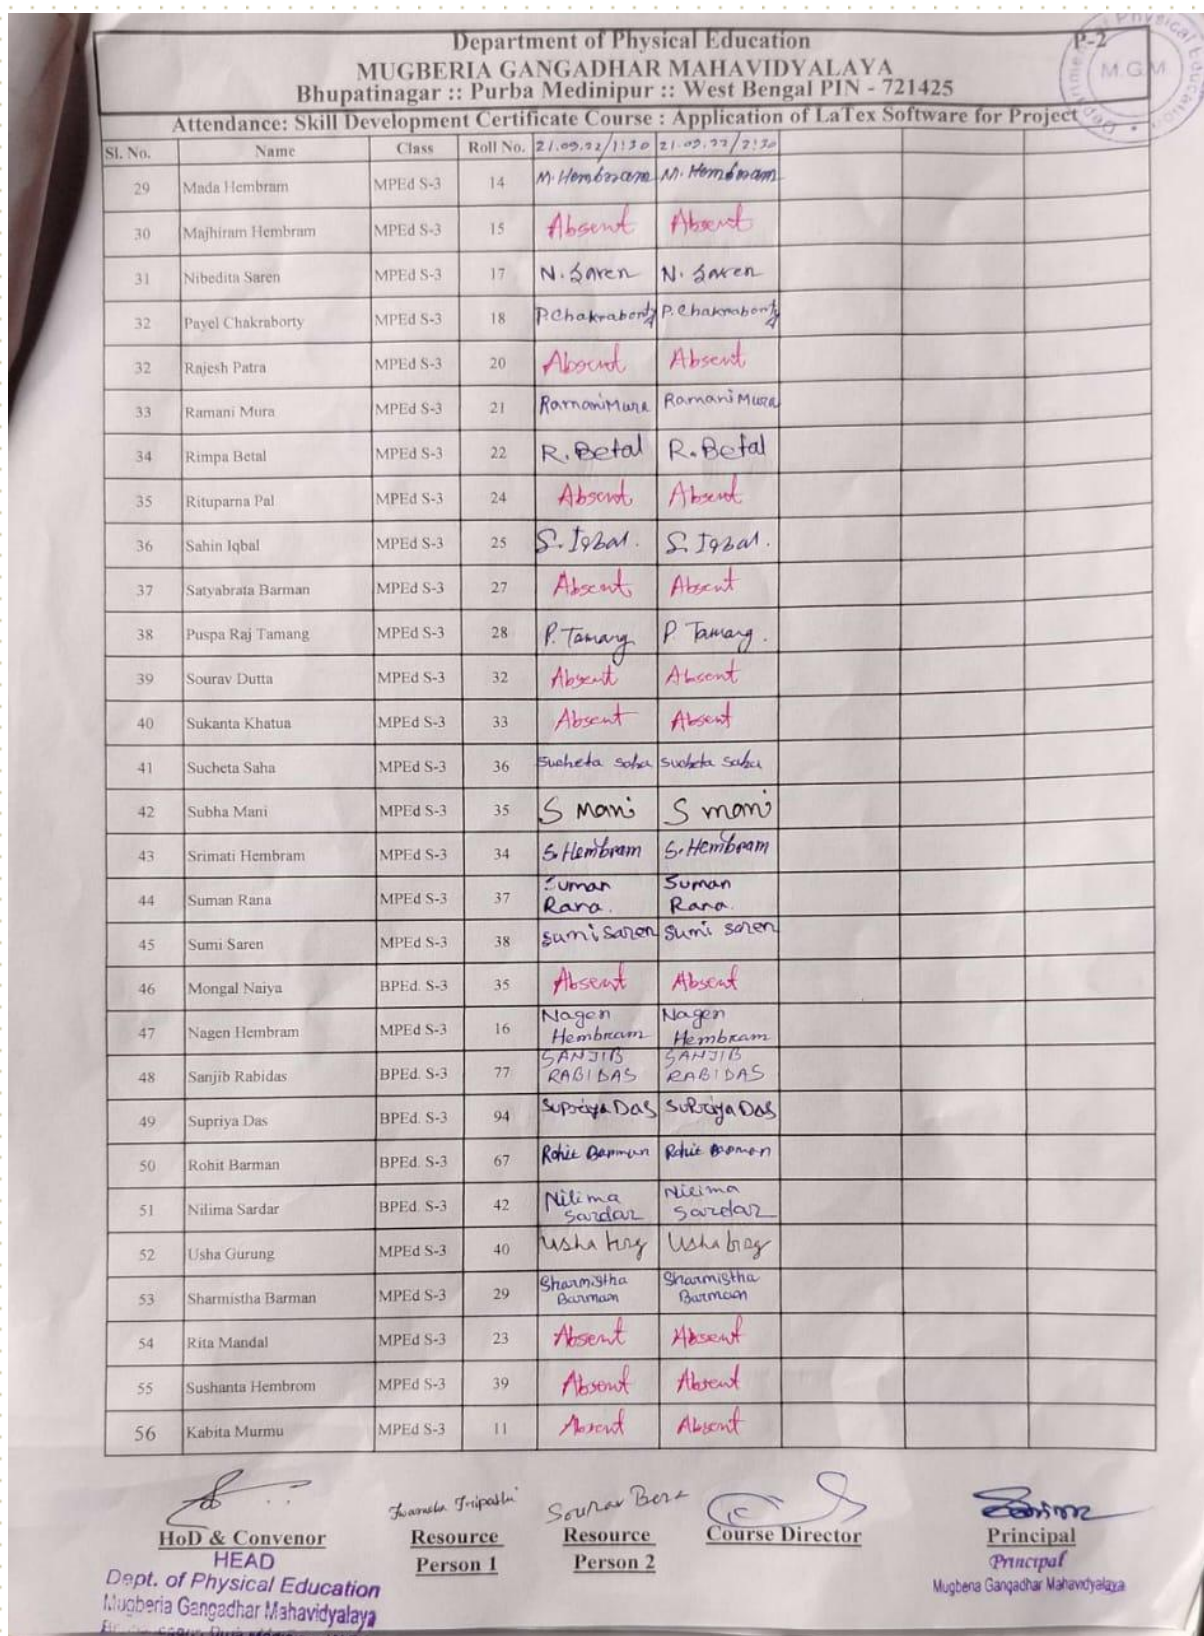 Department of Physical Education
P-2
MUGBERIA GANGADHAR MAHAVIDYALAYA
Bhupatinagar :: Purba Medinipur :: West Bengal PIN - 721425
M.G.M
Attendance: Skill Development Certificate Course : Application of LaTex Software for Project
Sl. No. Name Class Roll No. 21.09.22/1:30 21.09.22/2:30
29 Mada Hembram MPEd S-3 14 M. Hembram M. Hembram
30 Majhiram Hembram MPEd S-3 15 Absent Absent
31 Nibedita Saren MPEd S-3 17 N. Saren N. Saren
32 Payel Chakraborty MPEd S-3 18 P. Chakraborty P. Chakraborty
32 Rajesh Patra MPEd S-3 20 Absent Absent
33 Ramani Mura MPEd S-3 21 Ramani Mura Ramani Mura
34 Rimpa Betal MPEd S-3 22 R. Betal R. Betal
35 Rituparna Pal MPEd S-3 24 Absent Absent
36 Sahin Iqbal MPEd S-3 25 S. Iqbal. S. Iqbal.
37 Satyabrata Barman MPEd S-3 27 Absent Absent
38 Puspa Raj Tamang MPEd S-3 28 P. Tamang P. Tamang.
39 Sourav Dutta MPEd S-3 32 Absent Absent
40 Sukanta Khatua MPEd S-3 33 Absent Absent
41 Sucheta Saha MPEd S-3 36 Sucheta Saha Sucheta Saha
42 Subha Mani MPEd S-3 35 S Mani S mani
43 Srimati Hembram MPEd S-3 34 S. Hembram S. Hembram
44 Suman Rana MPEd S-3 37 Suman Rana. Suman Rana.
45 Sumi Saren MPEd S-3 38 Sumi Saren Sumi Saren
46 Mongal Naiya BPEd. S-3 35 Absent Absent
47 Nagen Hembram MPEd S-3 16 Nagen Hembram Nagen Hembram
48 Sanjib Rabidas BPEd. S-3 77 SANJIB RABIDAS SANJIB RABIDAS
49 Supriya Das BPEd. S-3 94 Supriya Das Supriya Das
50 Rohit Barman BPEd. S-3 67 Rohit Barman Rohit Barman
51 Nilima Sardar BPEd. S-3 42 Nilima Sardar Nilima Sardar
52 Usha Gurung MPEd S-3 40 Usha Usha
53 Sharmistha Barman MPEd S-3 29 Sharmistha Barman Sharmistha Barman
54 Rita Mandal MPEd S-3 23 Absent Absent
55 Sushanta Hembrom MPEd S-3 39 Absent Absent
56 Kabita Murmu MPEd S-3 11 Absent Absent
Tripathi Sourav Bera
HoD & Convenor Resource Person 1 Resource Person 2 Course Director Principal
HEAD
Dept. of Physical Education
Mugberia Gangadhar Mahavidyalaya
Principal
Mugberia Gangadhar Mahavidyalaya